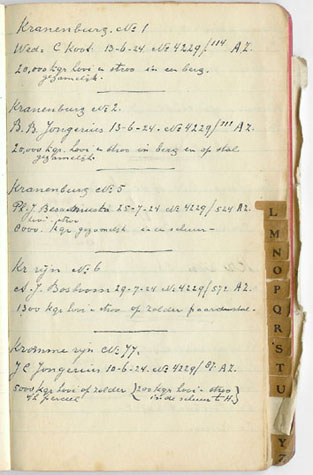 Kranenburg. № 1
Wed. C Kooi 13-6-24. № 4229/114 AZ.
20,000 kgr hooi en stroo in een berg.
gezamelijk.
Kranenburg № 2.
B. B. Jongerius 13-6-24. № 4229/111 AZ.
20,000 kgr. hooi en stroo in berg en op stal
gezamelijk.
Kranenburg № 5
25-7-24 № 4229/524 AZ.
hooi stroo
kgr gezamelijk in een schuur
Kr rijn № 6
J. Bosboom 29-7-24 № 4229/571 AZ.
1300 kgr hooi en stroo op zolder paardenstal.
Kromme rijn № 77.
J C Jongerius 10-6-24. № 4229/87 AZ
5000 kgr hooi op zolder (200 kgr hooi en stroo
op perceel in de schuur t. H.)
L
M
N
O
P
Q
R
S
T
U
Y
Z